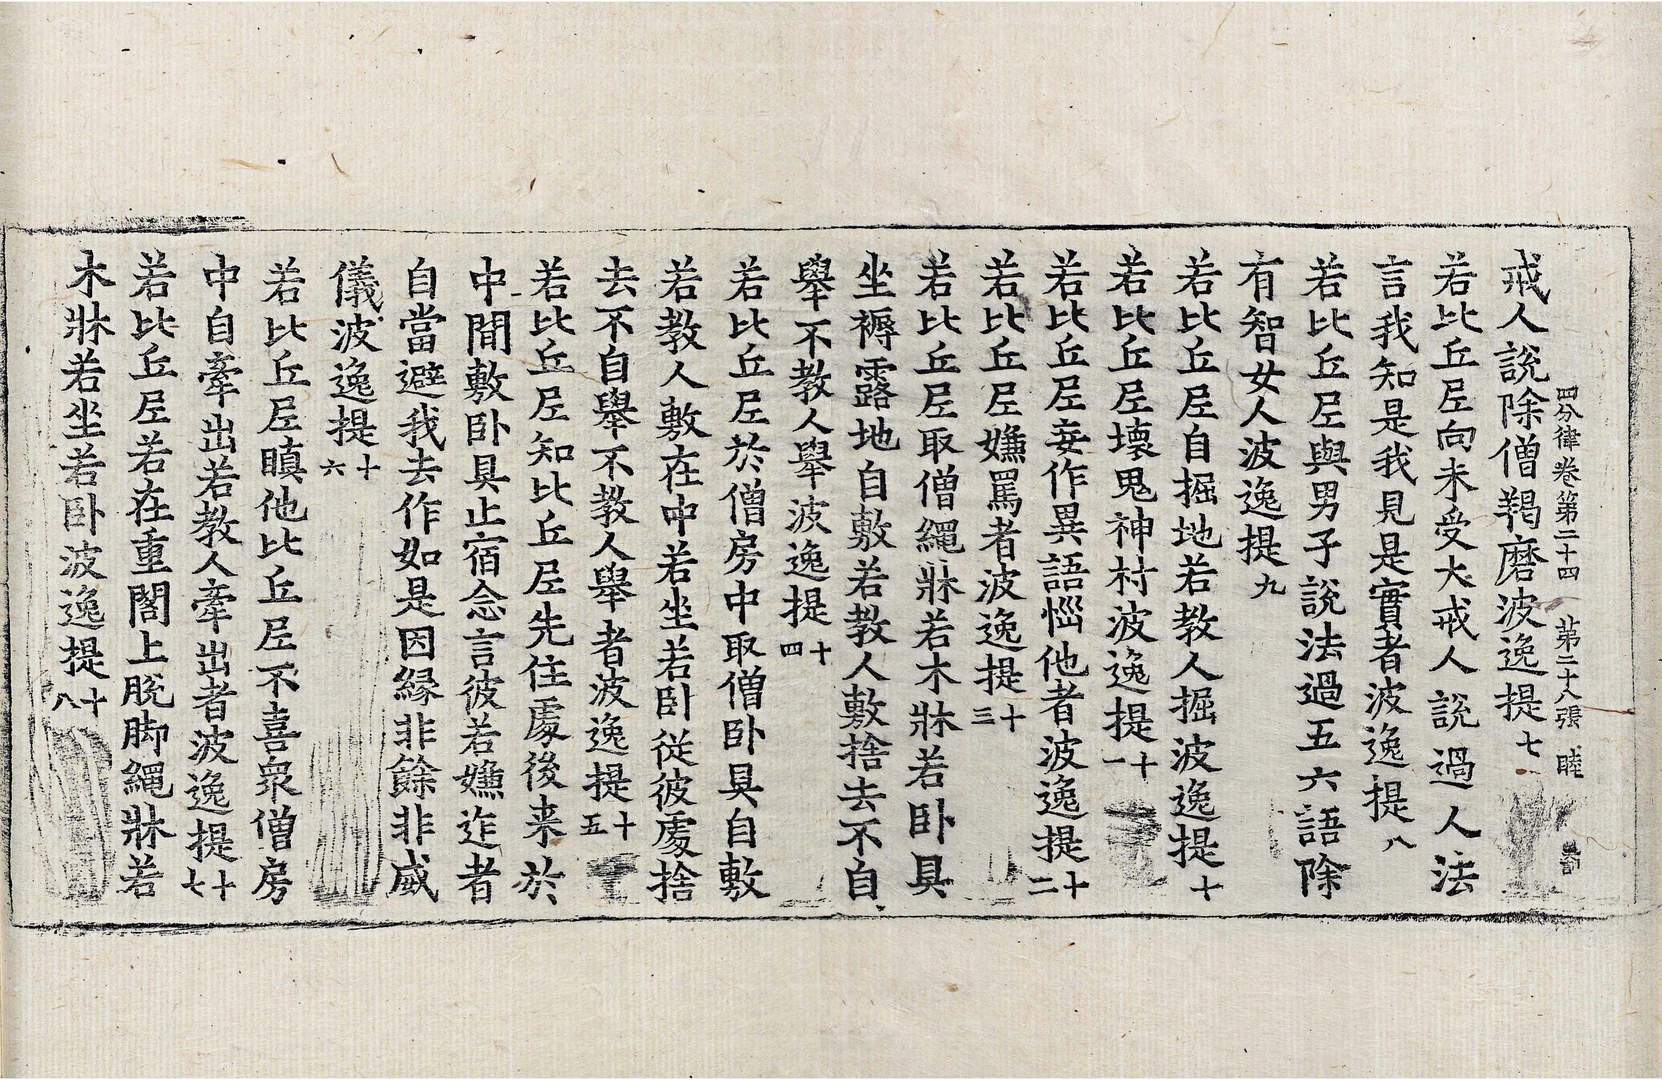 四分律卷第二十四　第二十八張　睦
戒人說除僧羯磨波逸提七
若比丘尼向未受大戒人說過人法
言我知是我見是實者波逸提八
若比丘尼與男子說法過五六語除
有智女人波逸提九
若比丘尼自掘地若教人掘波逸提十
若比丘尼壞鬼神村波逸提十一
若比丘尼妄作異語惱他者波逸提十二
若比丘尼嫌罵者波逸提十三
若比丘尼取僧繩牀若木牀若卧具
坐褥露地自敷若教人敷捨去不自
舉不教人舉波逸提十四
若比丘尼於僧房中取僧卧具自敷
若教人敷在中若坐若卧從彼處捨
去不自舉不教人舉者波逸提十五
若比丘尼知比丘尼先住處後来於
中間敷卧具止宿念言彼若嫌迮者
自當避我去作如是因緣非餘非威
儀波逸提十六
若比丘尼瞋他比丘尼不喜衆僧房
中自牽出若教人牽出者波逸提十七
若比丘尼若在重閣上脫脚繩牀若
木牀若坐若卧波逸提十八